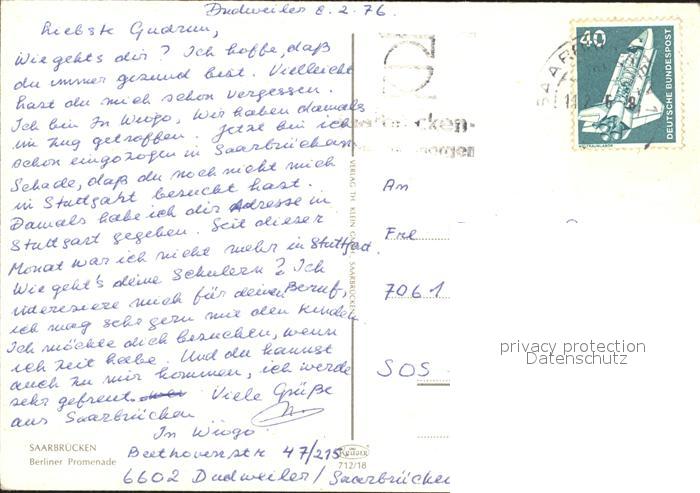 Dudweiler 8.2.76.
Liebste Gudrun,
Wie gehts dir? Ich hoffe, daß
du immer gesund bist. Vielleicht
hast du mich schon vergessen.
Ich bin In Wiogo, Wir haben damals
im Zug getroffen. Jetzt bin ich
schon eingezogen in Saarbrücken
Schade, daß du noch nicht mich
in Stuttgart besucht hast.
Damals habe ich dir Adresse in
Stuttgart gegeben. Seit dieser
Monat war ich nicht mehr in Stuttgart.
Wie geht's deine Schülern? Ich
interesiere mich für deinen Beruf,
ich mag sehr gern mit den Kindern
Ich möchte dich besuchen, wenn
ich Zeit habe. Und du kannst
auch zu mir kommen, ich werde
sehr gefreut. Viele Grüße
aus Saarbrücken
In Wiogo
Beethovenstr 47/215
6602 Dudweiler/Saarbrücken
SAARBRÜCKEN
Berliner Promenade
VERLAG TH. KLEIN GMBH, SAARBRÜCKEN
Krüger
712/18
40
DEUTSCHE BUNDESPOST
WELTRAUMLABOR
SAARB
An
Frl
7061
SOS
privacy protection
Datenschutz